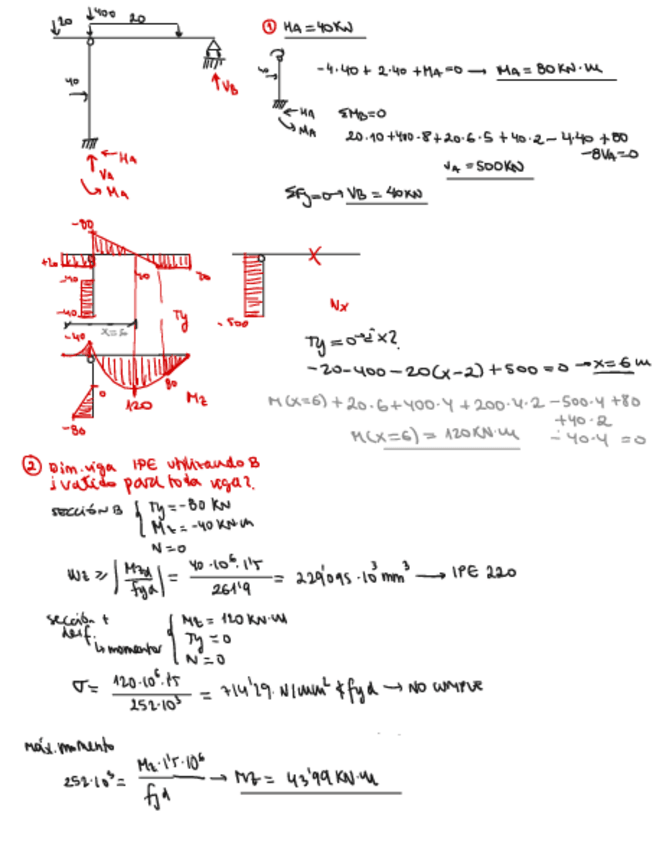 ↓20 ↓400 20
① HA = 40KN
40
-4·40 + 2·40 + MA = 0 → MA = 80 KN·m
VB
HA
MA
ΣMB=0
20·10 + 400·8 + 20·6·5 + 40·2 - 4·40 + 80
-8VA = 0
HA
VA
MA
VA = 500KN
ΣFy = 0 → VB = 40KN
-80
+20
-40
-40
Ty
x=6
- 500
Nx
-40
0
80
Mz
120
-80
Ty = 0 → ¿x?
-20 - 400 - 20(x-2) + 500 = 0 → x = 6 m
M(x=6) + 20·6 + 400·4 + 200·4·2 - 500·4 + 80
+40·2
-40·4 = 0
M(x=6) = 120KN·m
② Dim. viga IPE utilizando B
¿ válido para toda viga?
SECCIÓN B
Ty = -80 KN
Mz = -40 KN·m
N = 0
Wz ≥ |Mzd / fyd| = 40·10⁶·1'5 / 261'9 = 229'095·10³ mm³ → IPE 220
sección +
desf.
↳ momentos
Mz = 120 KN·m
Ty = 0
N = 0
σ = 120·10⁶·1'5 / 252·10³ = 714'29 N/mm² ≮ fyd → NO CUMPLE
máx. momento
252·10³ = Mz·1'5·10⁶ / fyd → Mz = 43'99 KN·m